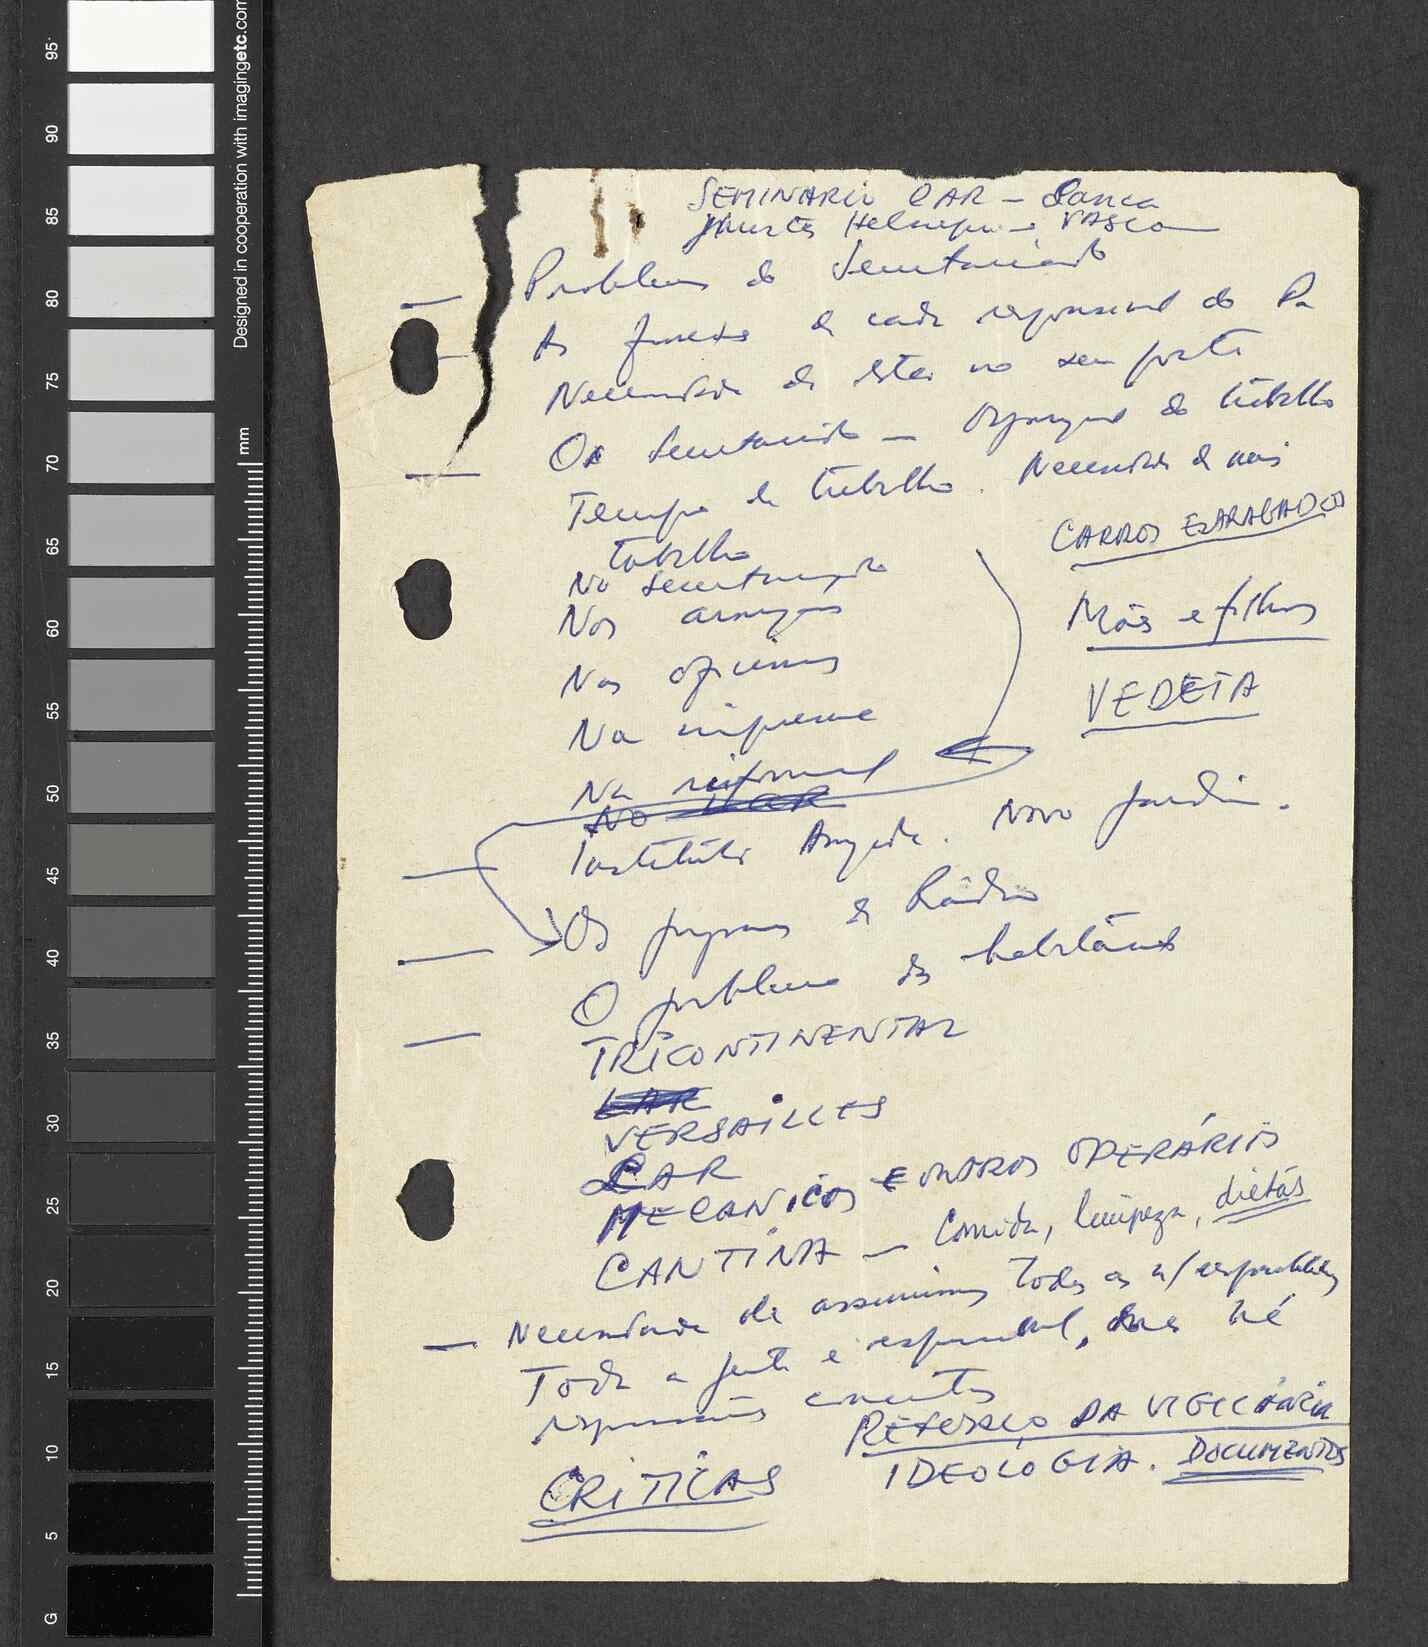 95
90
85
80
75
70
65
60
55
50
45
40
35
30
25
20
15
10
5
G
Designed in cooperation with imagingetc.com
mm
SEMINARIO LAR —
VASCO
— Problemas do Secretariado
— As funções de cada responsavel do
Necessidade de estar no seu posto
— O Secretariado — do trabalho
Tempo de trabalho. Necessidade de mais
trabalho
CARROS
No
Nos armazens
Mães e filhos
Nas oficinas
VEDETA
Na imprensa
Na
No LAR
— Instituto Amizade. Novo Jardim.
— Os programas de Rádio
O problema das
— TRICONTINENTAL
LAR
VERSAILLES
LAR
MECANICOS E OUTROS OPERÁRIOS
CANTINA — Comida, limpeza, dietas
— Necessidade de assumirmos todas as n/
Toda a gente é responsavel, mas há
responsáveis
REFORÇO DA VIGILÂNCIA
IDEOLOGIA. DOCUMENTOS
CRITICAS